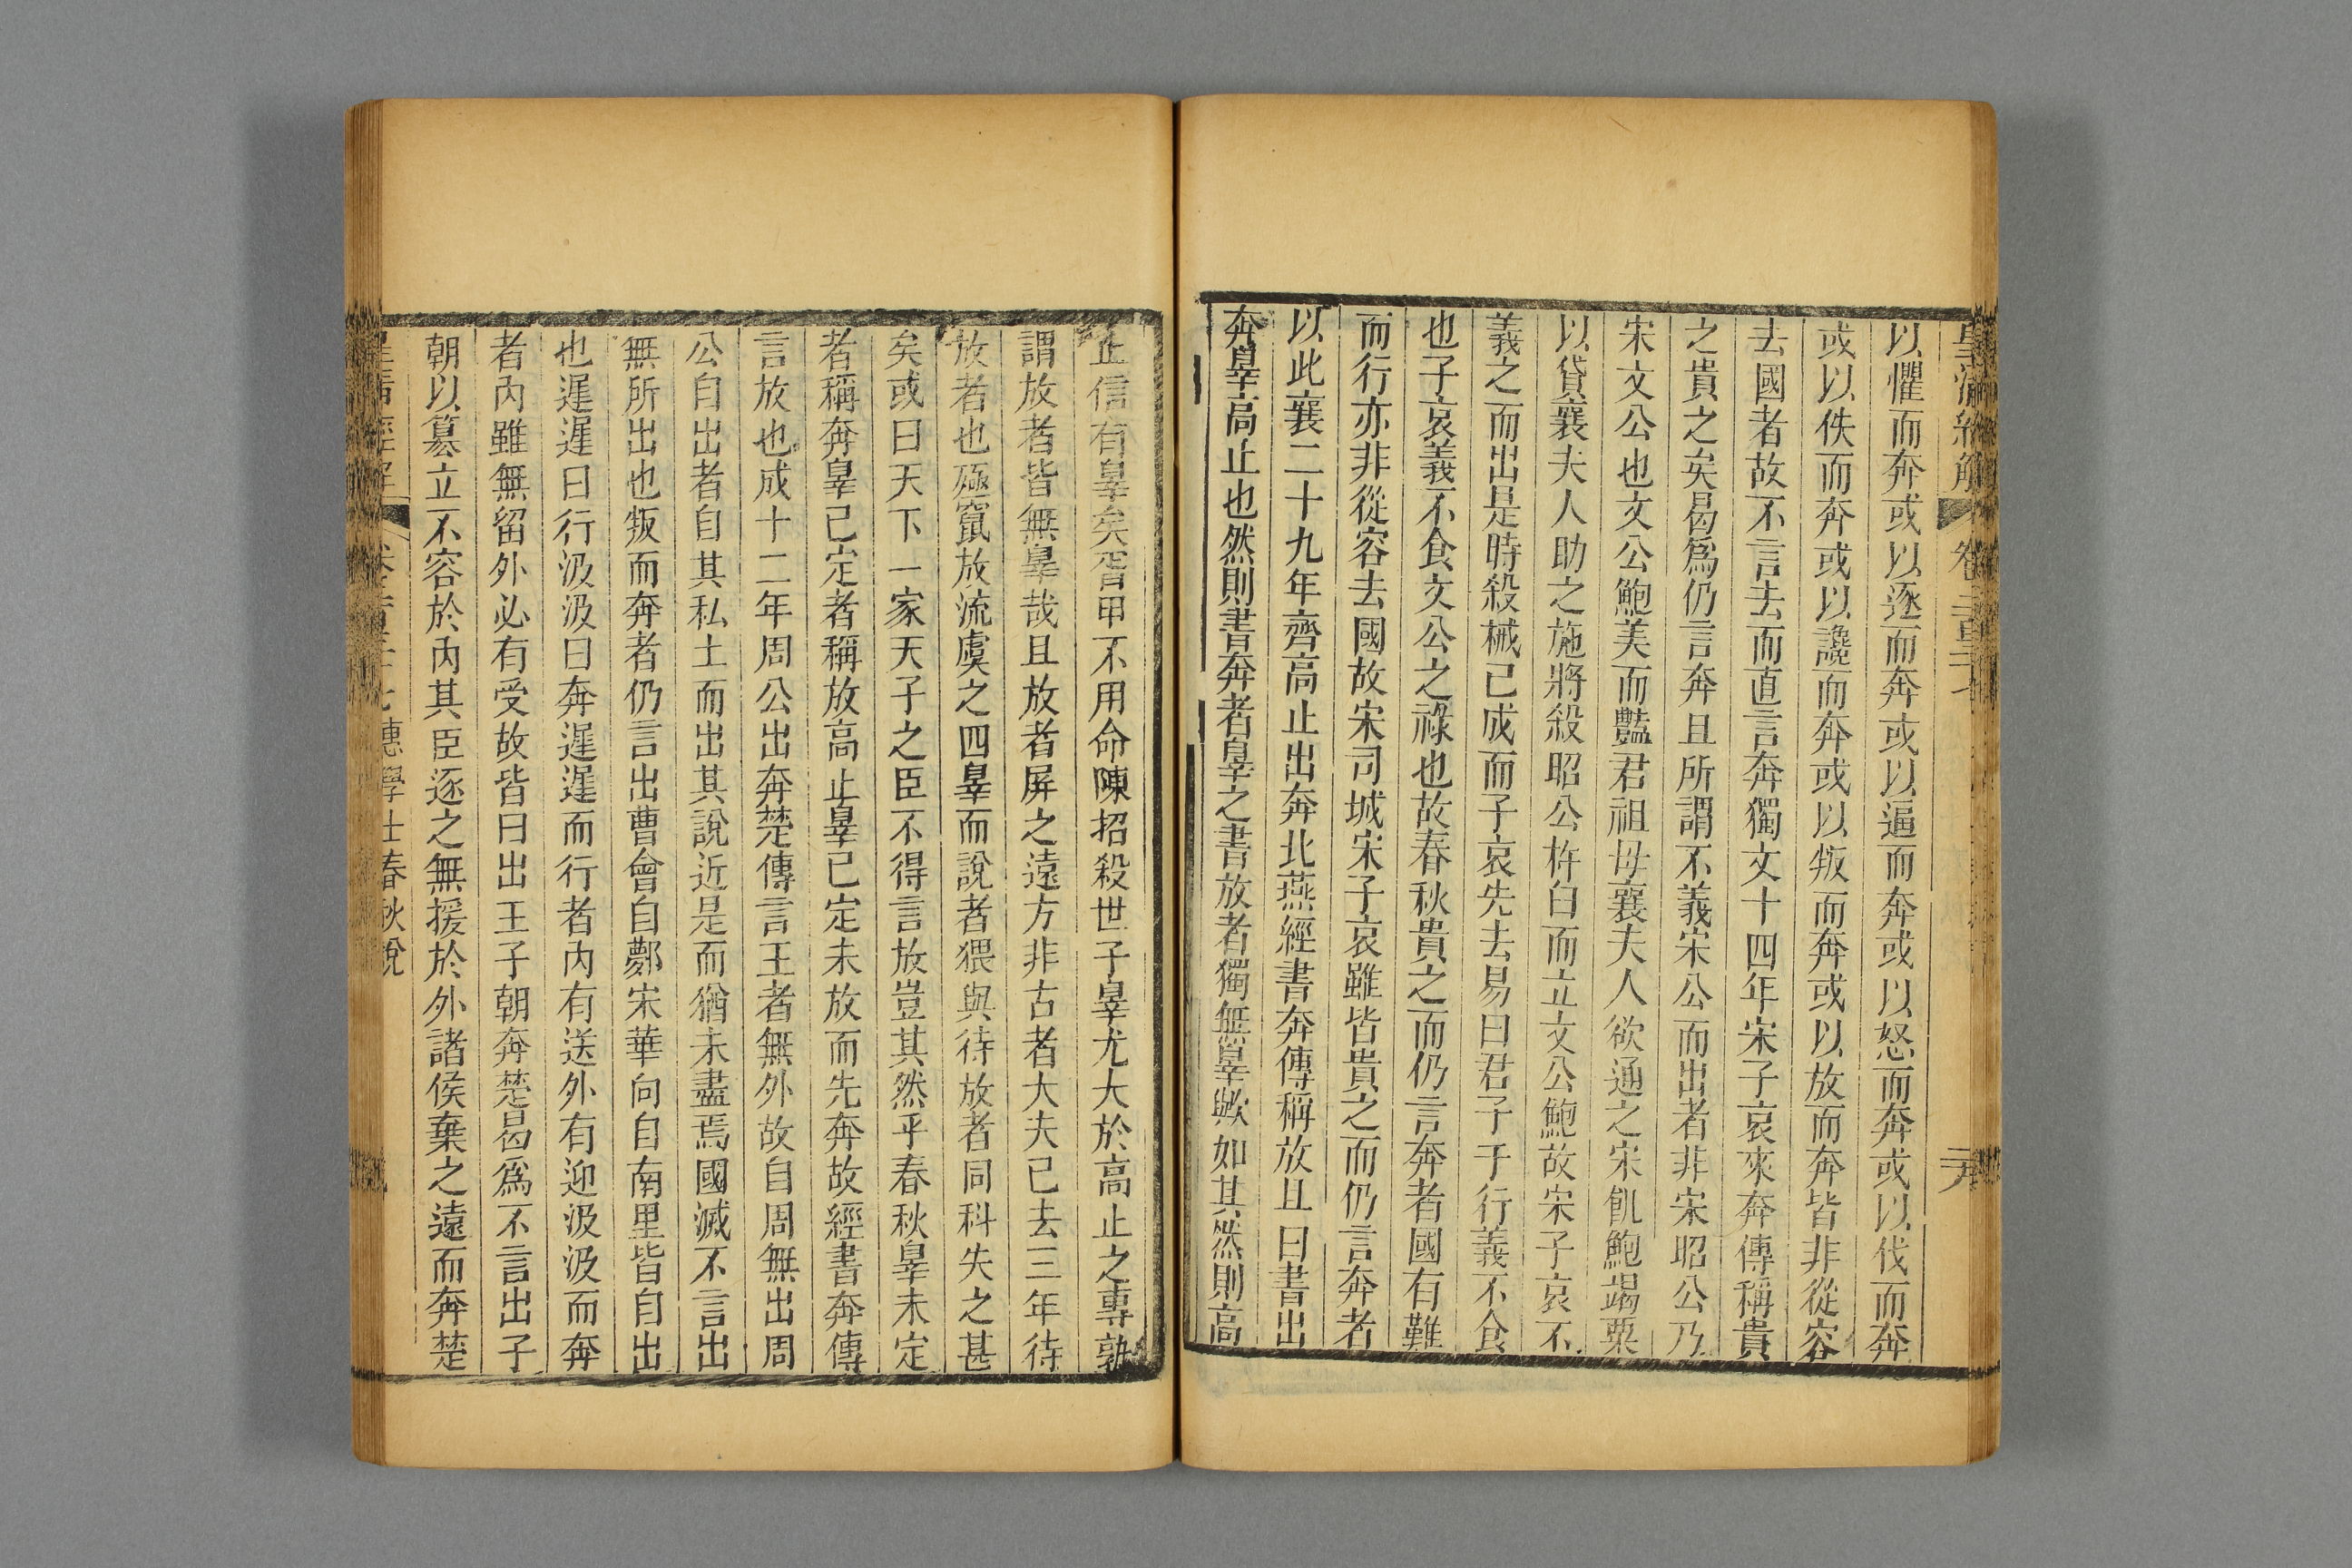 以懼而奔或以逐而奔或以逼而奔或以怒而奔或以伐而奔
或以佚而奔或以讒而奔或以叛而奔或以放而奔皆非從容
去國者故不言去而直言奔獨文十四年宋子哀來奔傳稱貴
之貴之矣曷爲仍言奔且所謂不義宋公而出者非宋昭公乃
宋文公也文公鮑美而豔君祖母襄夫人欲通之宋飢鮑竭粟
以貸襄夫人助之施將殺昭公杵臼而立文公鮑故宋子哀不
義之而出是時殺械已成而子哀先去易曰君子于行義不食
也子哀義不食文公之祿也故春秋貴之而仍言奔者國有難
而行亦非從容去國故宋司城宋子哀雖皆貴之而仍言奔者
以此襄二十九年齊高止出奔北燕經書奔傳稱放且曰書出
奔辠高止也然則書奔者辠之書放者獨無辠歟如其然則高
止信有辠矣胥甲不用命陳招殺世子辠尤大於高止之專孰
謂放者皆無辠哉且放者屛之遠方非古者大夫已去三年待
放者也殛竄放流虞之四辠而說者猥與待放者同科失之甚
矣或曰天下一家天子之臣不得言放豈其然乎春秋辠未定
者稱奔辠已定者稱放高止辠已定未放而先奔故經書奔傳
言放也成十二年周公出奔楚傳言王者無外故自周無出周
公自出者自其私土而出其說近是而猶未盡焉國滅不言出
無所出也叛而奔者仍言出曹會自鄸宋華向自南里皆自出
也遲遲曰行汲汲曰奔遲遲而行者內有送外有迎汲汲而奔
者內雖無留外必有受故皆曰出王子朝奔楚曷爲不言出子
朝以簒立不容於內其臣逐之無援於外諸侯棄之遠而奔楚
惠學士春秋說